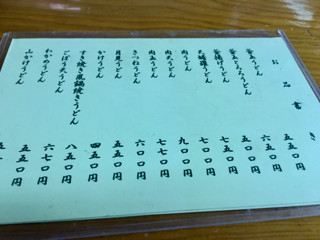 お品書き
釜玉うどん 五五〇円
釜玉とろろうどん 六五〇円
釜揚げうどん 五五〇円
天婦羅うどん 七五〇円
肉うどん 七五〇円
肉天うどん 九〇〇円
肉玉うどん 七七〇円
きつねうどん 六〇〇円
月見うどん 五五〇円
かけうどん 四五〇円
すき焼き風鍋焼きうどん 八五〇円
ごぼう天うどん 六七〇円
わかめうどん 五五〇円
山かけうどん